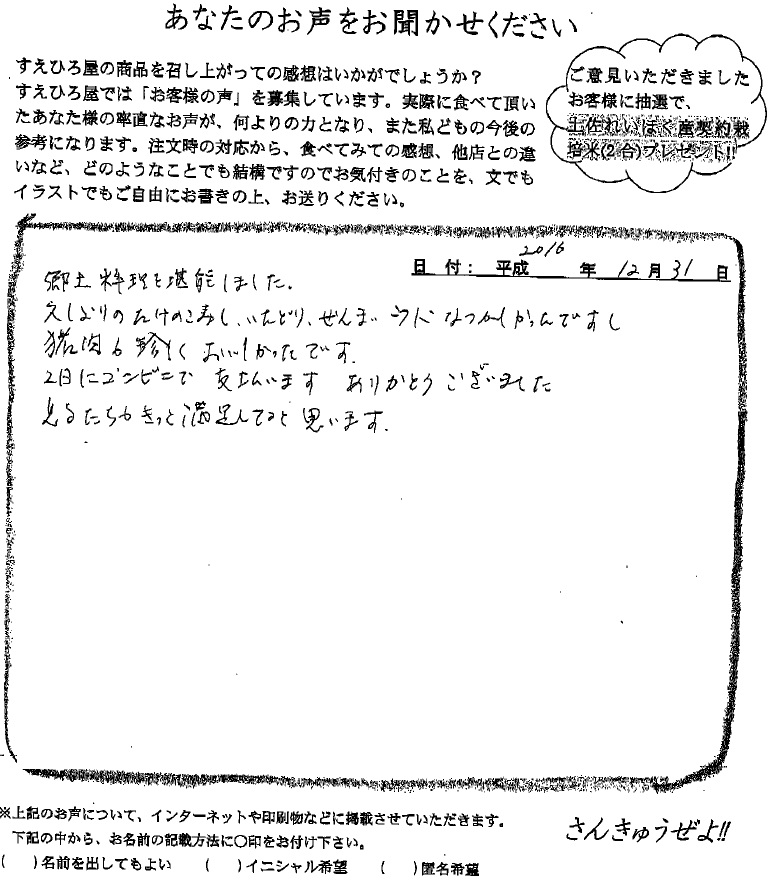 あなたのお声をお聞かせください
すえひろ屋の商品を召し上がっての感想はいかがでしょうか？
すえひろ屋では「お客様の声」を募集しています。実際に食べて頂い
たあなた様の率直なお声が、何よりの力となり、また私どもの今後の
参考になります。注文時の対応から、食べてみての感想、他店との違
いなど、どのようなことでも結構ですのでお気付きのことを、文でも
イラストでもご自由にお書きの上、お送りください。
ご意見いただきました
お客様に抽選で、
土佐れいほく産契約栽
培米(2合)プレゼント!!
日 付： 平成 2016 年 12 月 31 日
郷土料理を堪能しました。
たけのこ寿し、いたどり、ぜんまい なつかしかったですし
猪肉も珍しく おいしかったです。
2日にコンビニで 支払います ありがとうございました
きっと満足してると思います。
※上記のお声について、インターネットや印刷物などに掲載させていただきます。
下記の中から、お名前の記載方法に〇印をお付け下さい。
(　)名前を出してもよい　(　)イニシャル希望　(　)匿名希望
さんきゅうぜよ!!